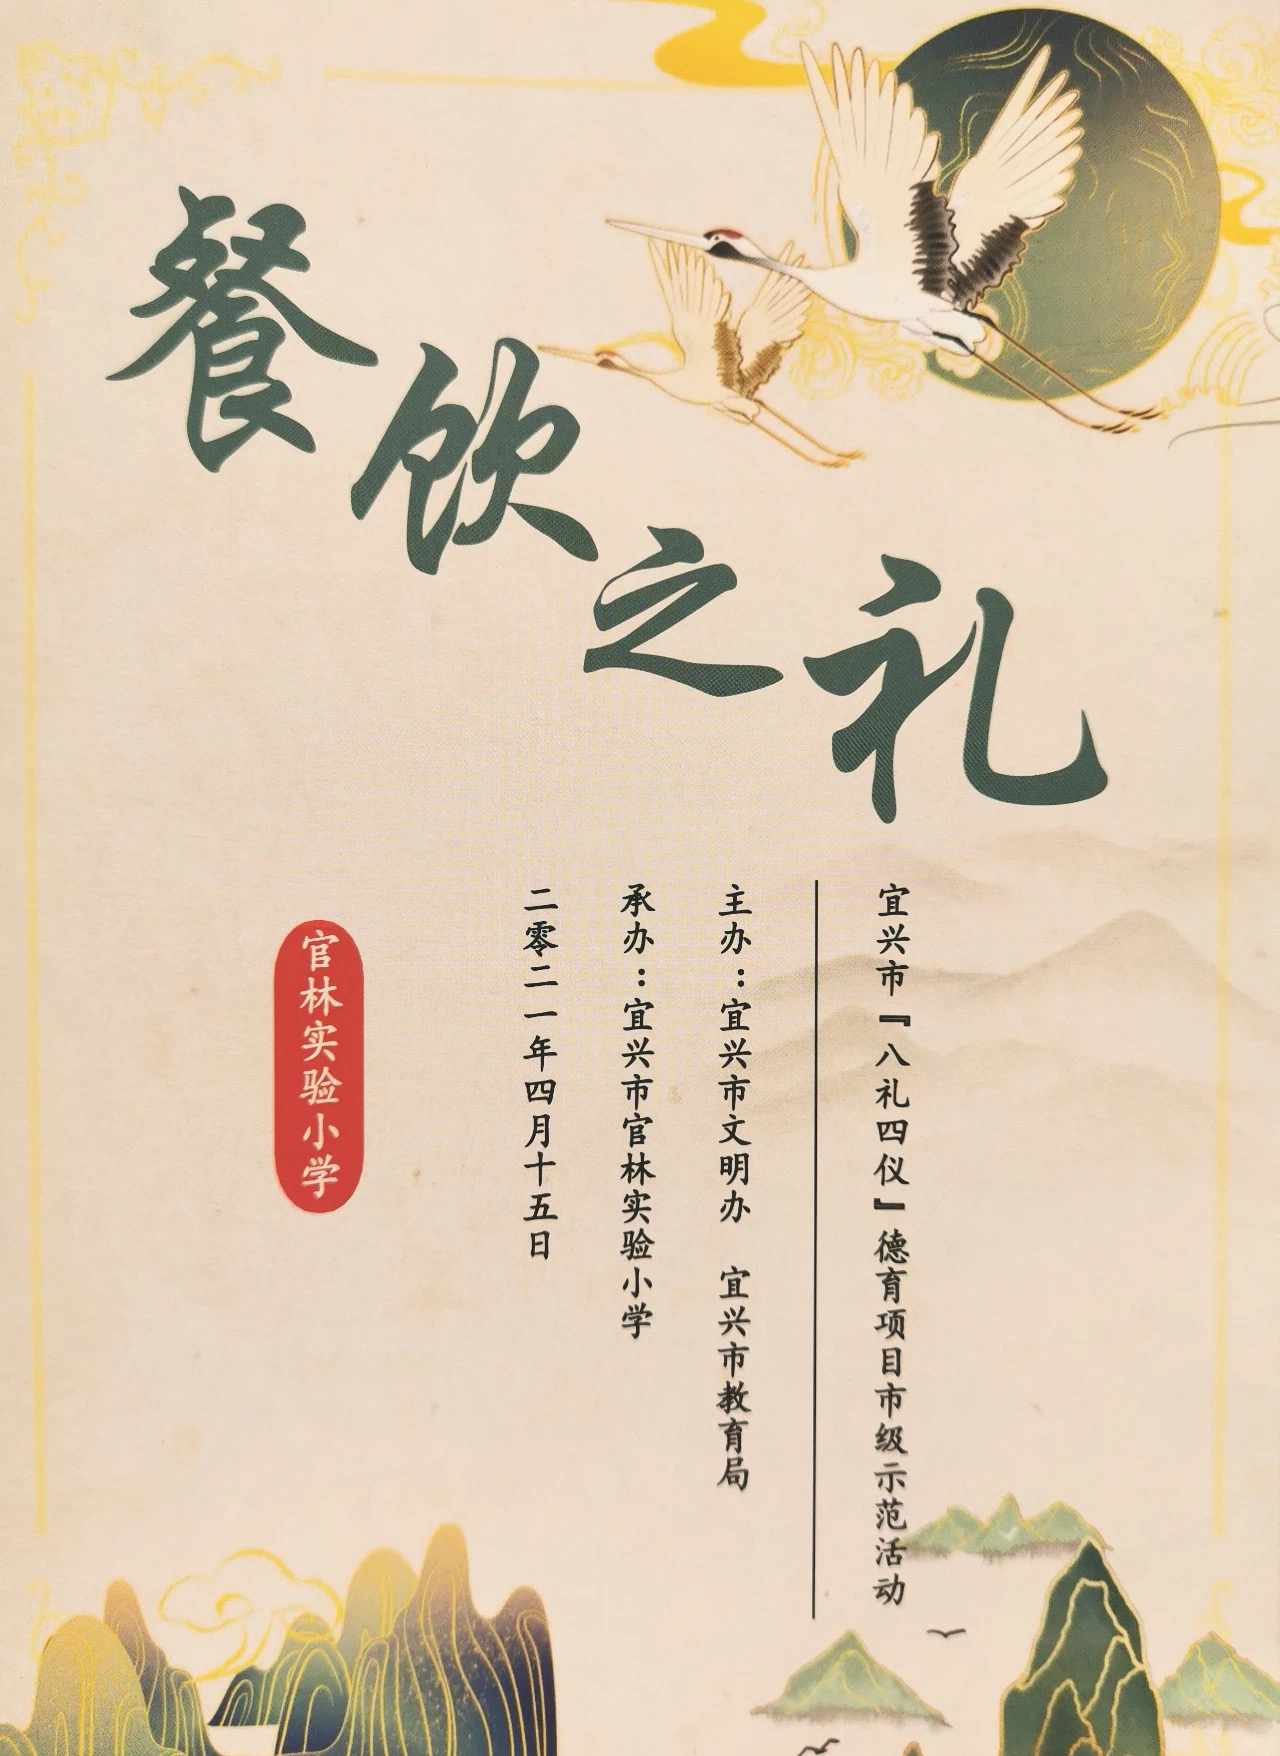 餐饮之礼
宜兴市『八礼四仪』德育项目市级示范活动
主办：宜兴市文明办 宜兴市教育局
承办：宜兴市官林实验小学
二零二一年四月十五日
官林实验小学